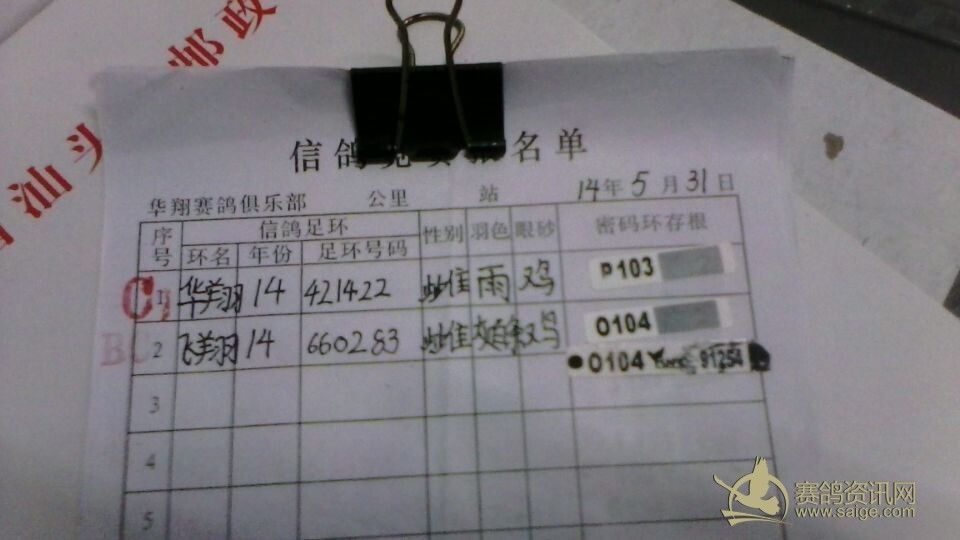 汕头 邮政
信鸽 名单
华翔赛鸽俱乐部 公里 站 14年5月31日
序号 信鸽足环 性别 羽色 眼砂 密码环存根
环名 年份 足环号码
C 1 华翔 14 421422 雌 雨 鸡 P103
B 2 飞翔 14 660283 雌 O104
O104 91254
3
4
5
赛鸽资讯网
www.saige.com